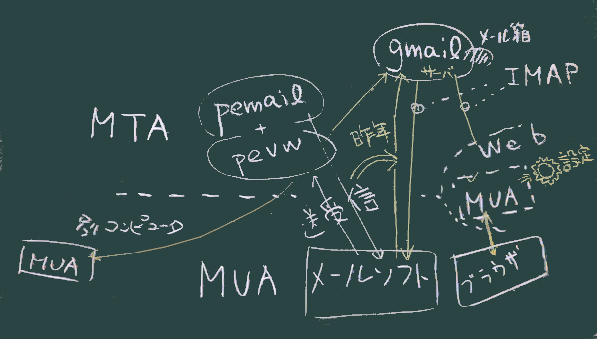 gmail
メール箱
サーバ
IMAP
pemail
+
pevw
MTA
昨年
Web
設定
MUA
送受信
別コンピュータ
MUA
MUA
メールソフト
ブラウザ